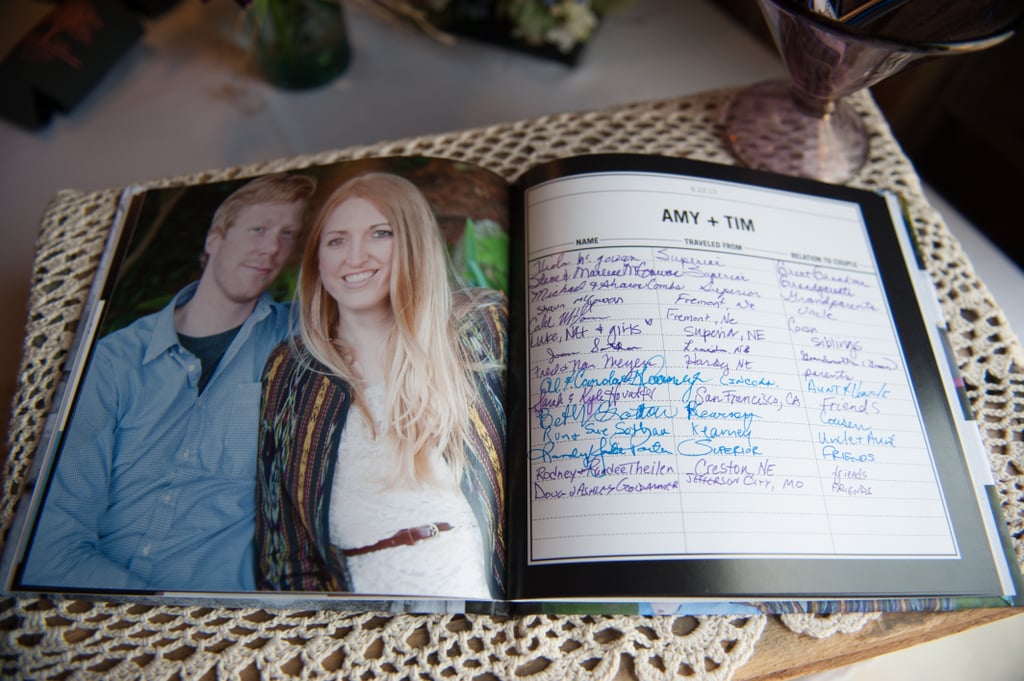 AMY + TIM
NAME TRAVELED FROM RELATION TO COUPLE
Viola McGowan Superior Great Grandma
Steve & Marlene McGowan Superior Grandparents
Michael & Sharon Combs Superior Grandparents
Shawn McGowan Fremont, Ne Uncle
Fremont, Ne
Luke, Nat + girls Superior, NE Siblings
Lincoln, NE
Fred & Nan Meyer Hardy NE parents
Lincoln. Aunt &
Sarah & Kyle San Francisco, CA Friends
Kearney Cousin
Ron & Sue Kearney Uncle & Aunt
Superior FRIENDS
Rodney + Theilen Creston, NE friends
DOUG & ASHLEY JEFFERSON CITY, MO FRIENDS